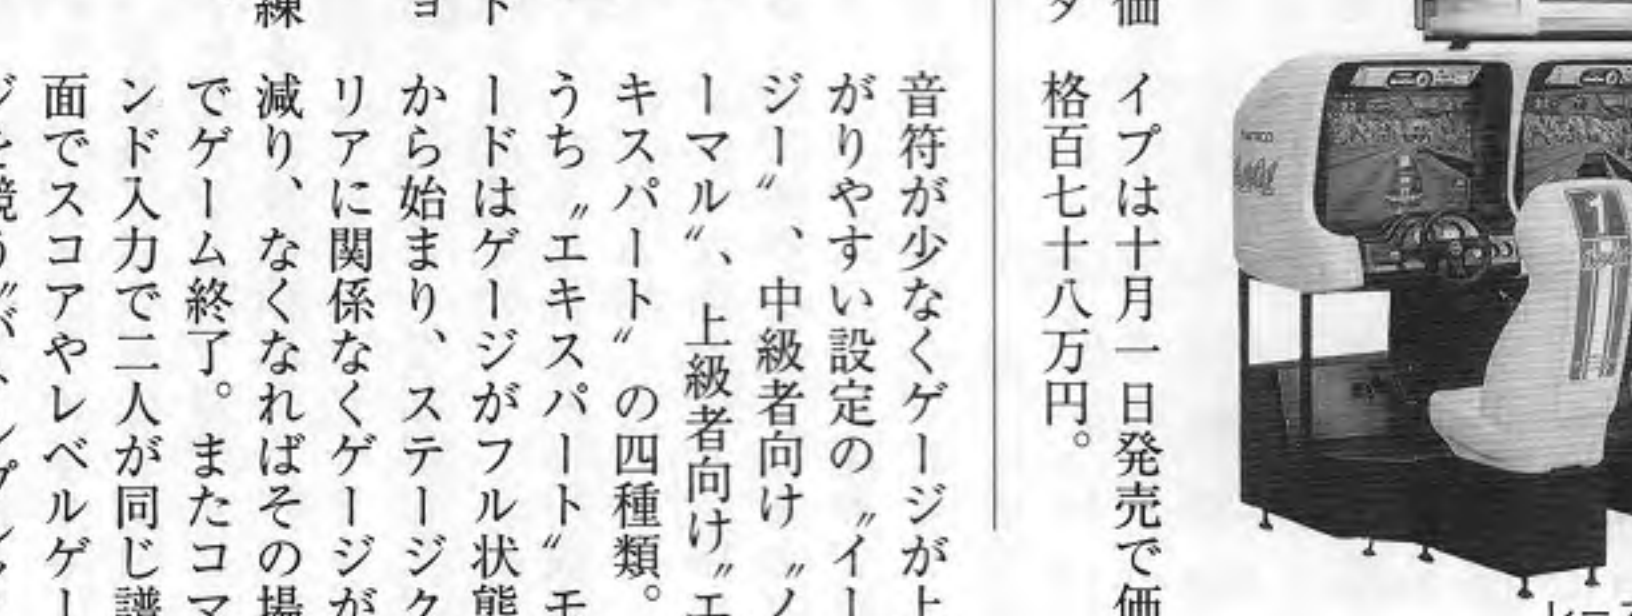 イプは十月一日発売で価
格百七十八万円。
音符が少なくゲージが上
がりやすい設定の〝イー
ジー〟、中級者向け〝ノ
ーマル〟、上級者向け〝エ
キスパート〟の四種類。
うち〝エキスパート〟モ
ードはゲージがフル状態
から始まり、ステージク
リアに関係なくゲージが
減り、なくなればその場
でゲーム終了。またコマ
ンド入力で二人が同じ譜
面でスコアやレベルゲー
価
タ
ド
ョ
練
namco
1